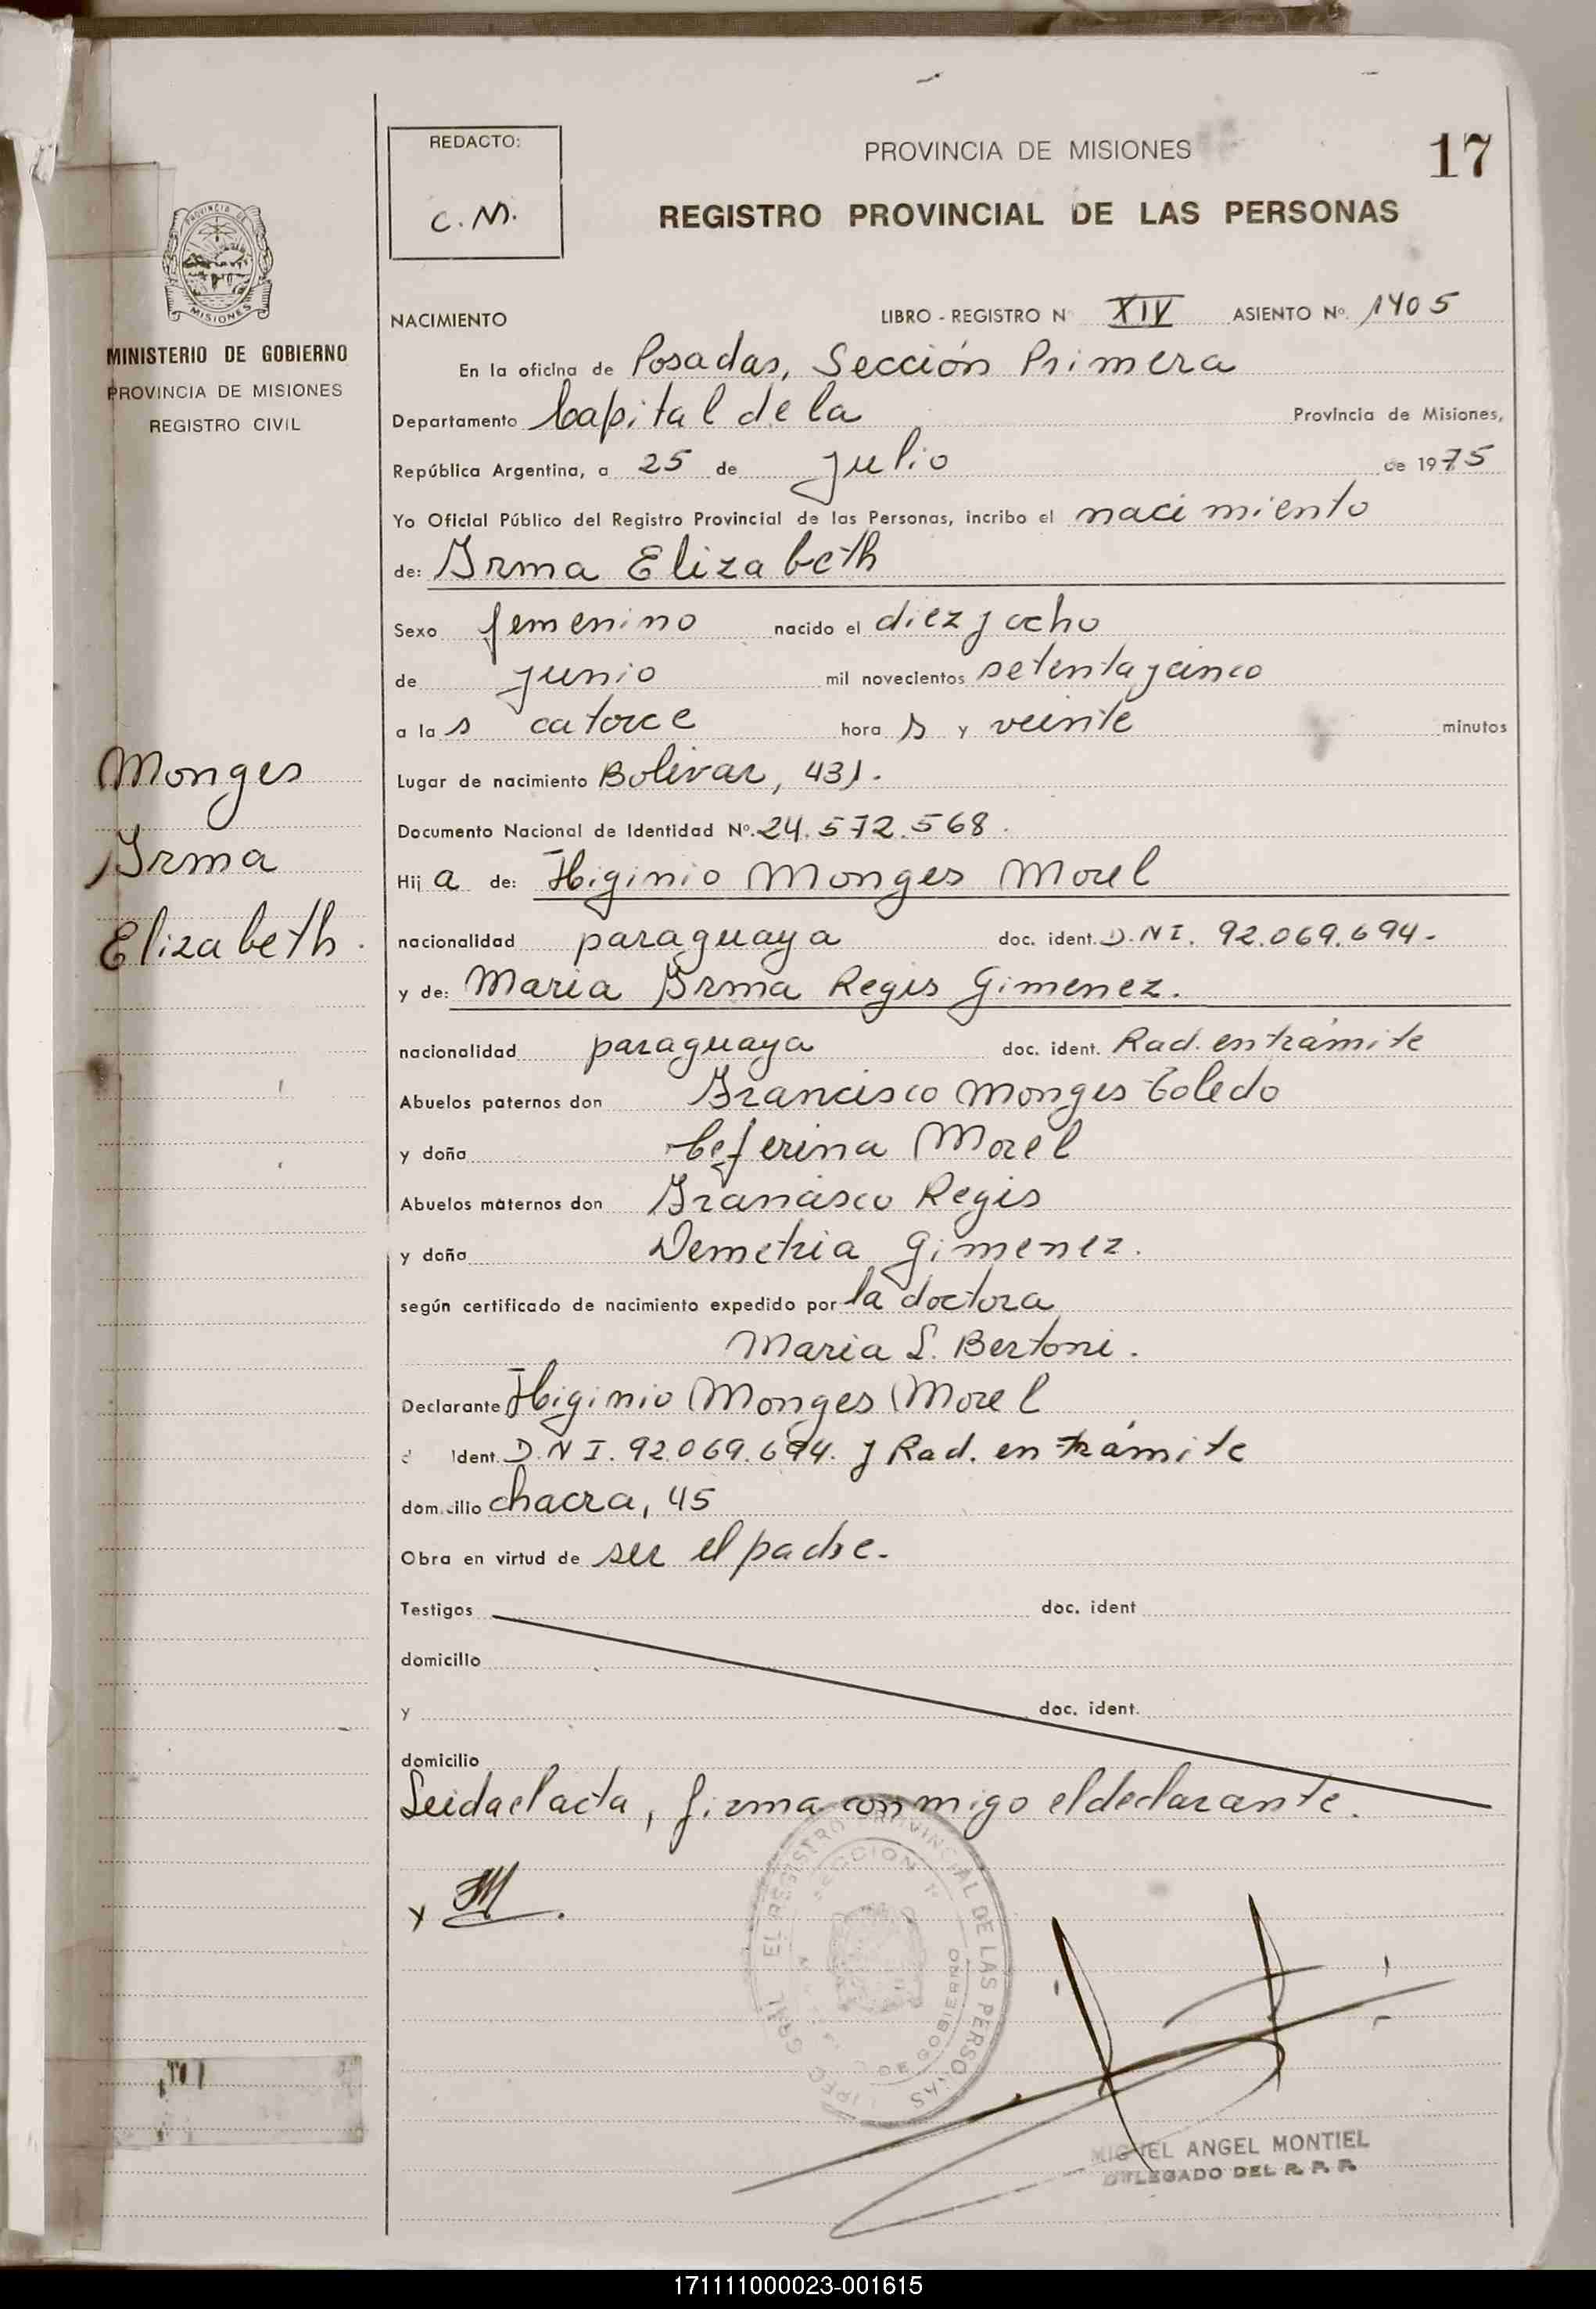 REDACTO:
C. M.
PROVINCIA DE MISIONES
17
REGISTRO PROVINCIAL DE LAS PERSONAS
PROVINCIA DE
MISIONES
MINISTERIO DE GOBIERNO
PROVINCIA DE MISIONES
REGISTRO CIVIL
NACIMIENTO LIBRO - REGISTRO N XIV ASIENTO Nº. 1405
En la oficina de Posadas, Sección Primera
Departamento Capital de la Provincia de Misiones,
República Argentina, a 25 de julio de 1975
Yo Oficial Público del Registro Provincial de las Personas, incribo el nacimiento
de: Irma Elizabeth
Sexo femenino nacido el diez y ocho
de junio mil novecientos setenta y cinco
a la s catorce hora s y veinte minutos
Monges
Irma
Elizabeth.
Lugar de nacimiento Bolivar, 431.
Documento Nacional de Identidad Nº. 24.572.568.
Hij a de: Higinio Monges Morel
nacionalidad paraguaya doc. ident. D.N I. 92.069.694.
y de: Maria Irma Regis Gimenez.
nacionalidad paraguaya doc. ident. Rad. en trámite
Abuelos paternos don Francisco Monges Toledo
y doña Ceferina Morel
Abuelos maternos don Francisco Regis
y doña Demetria Gimenez.
según certificado de nacimiento expedido por la doctora
Maria L. Bertoni.
Declarante Higinio Monges Morel
d Ident. D.N I. 92.069.694. y Rad. en trámite
domicilio chacra, 45
Obra en virtud de ser el padre.
Testigos doc. ident
domicilio
y doc. ident.
domicilio
Leida el acta, firma conmigo el declarante.
EL REGISTRO PROVINCIAL DE LAS PERSONAS
SECCION 1ª
DE GOBIERNO
MIGUEL ANGEL MONTIEL
DELEGADO DEL R. P. P.
171111000023-001615